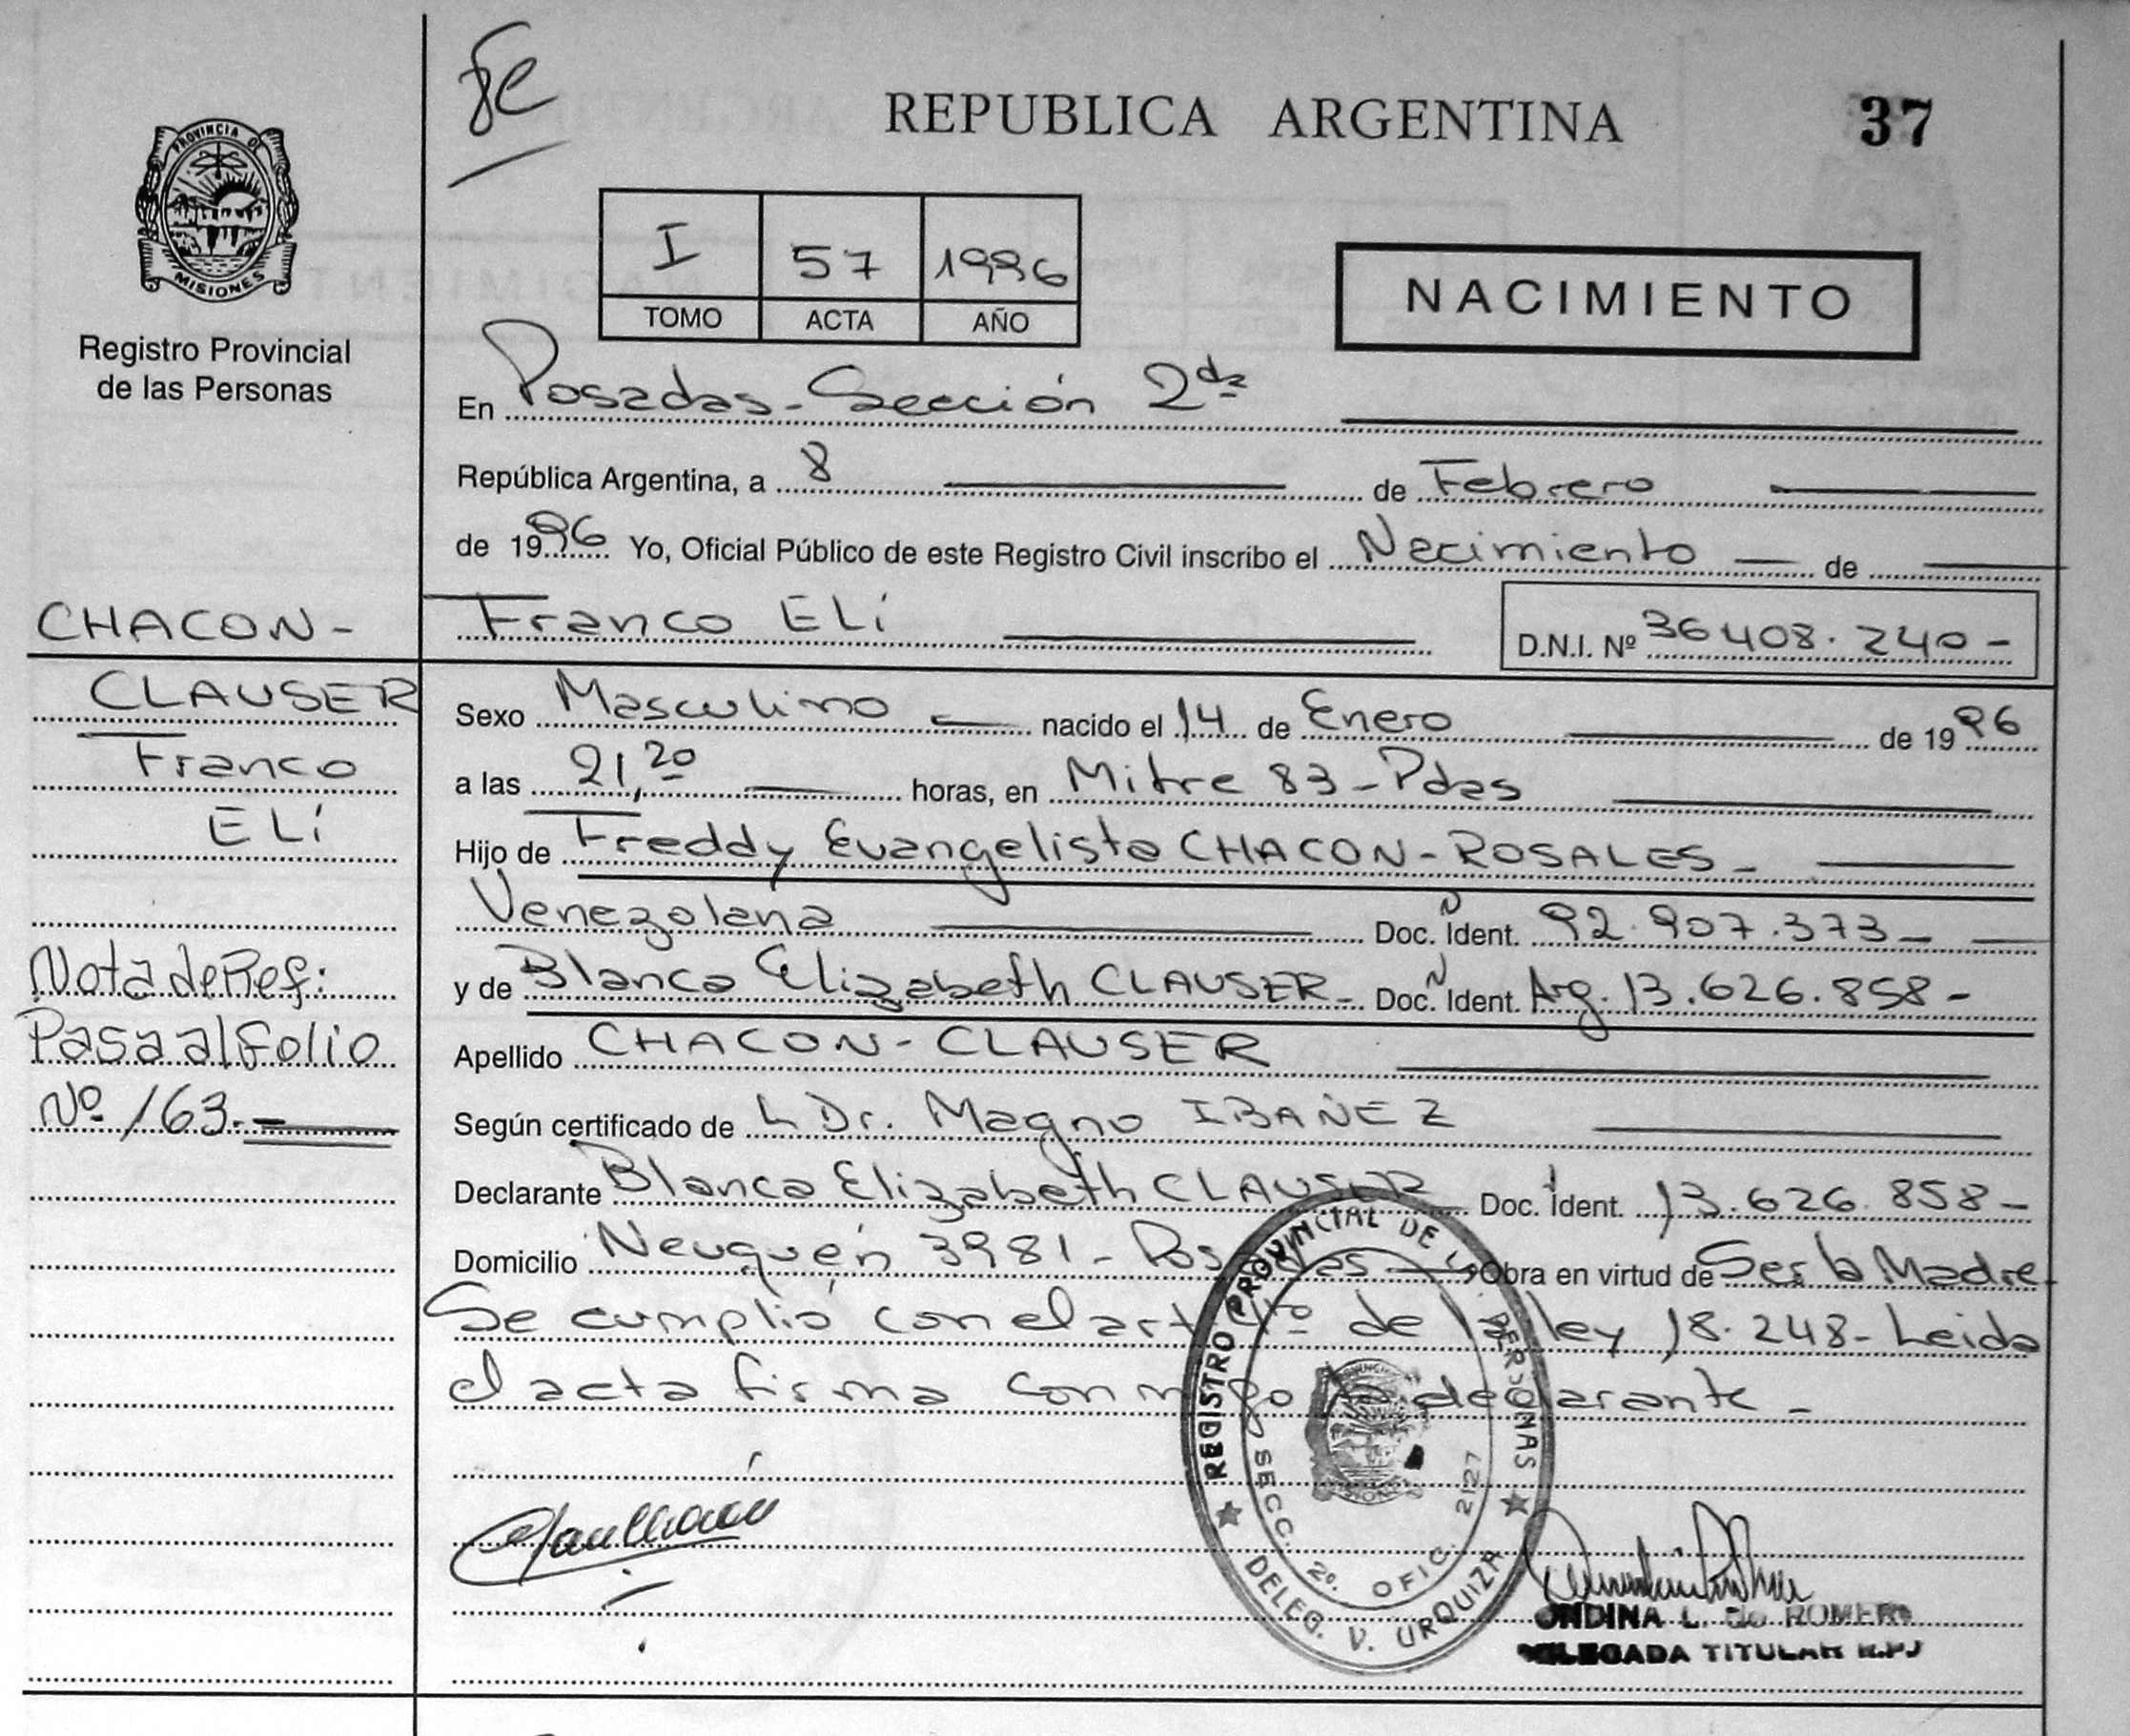 Fe
REPUBLICA ARGENTINA
37
PROVINCIA DE
MISIONES
Registro Provincial
de las Personas
I 57 1996
TOMO ACTA AÑO
NACIMIENTO
En Posadas-Sección 2da
República Argentina, a 8 de Febrero
de 1996 Yo, Oficial Público de este Registro Civil inscribo el Nacimiento de
Franco ELí D.N.I. Nº 36408.240-
CHACON-
CLAUSER
Franco
ELí
Nota de Ref:
Pasa al folio
Nº 163.-
Sexo Masculino nacido el 14 de Enero de 1996
a las 21,20 horas, en Mitre 83-Pdas
Hijo de Freddy Evangelista CHACON-ROSALES-
Venezolana Doc. Ident. 92.907.373-
y de Blanca Elizabeth CLAUSER- Doc. Ident. Arg. 13.626.858-
Apellido CHACON-CLAUSER
Según certificado de L Dr. Magno IBAÑEZ
Declarante Blanca Elizabeth CLAUSER Doc. Ident. 13.626.858-
Domicilio Neuquén 3981-Posadas Obra en virtud de Ser la Madre
Se cumplió con el art 4º de la ley 18.248-Leida
el acta firma conmigo la declarante-
REGISTRO PROVINCIAL DE L. PERSONAS
SECC. 2º. OFIC. 2127
DELEG. V. URQUIZA
ONDINA L. de ROMERO
DELEGADA TITULAR R.P.